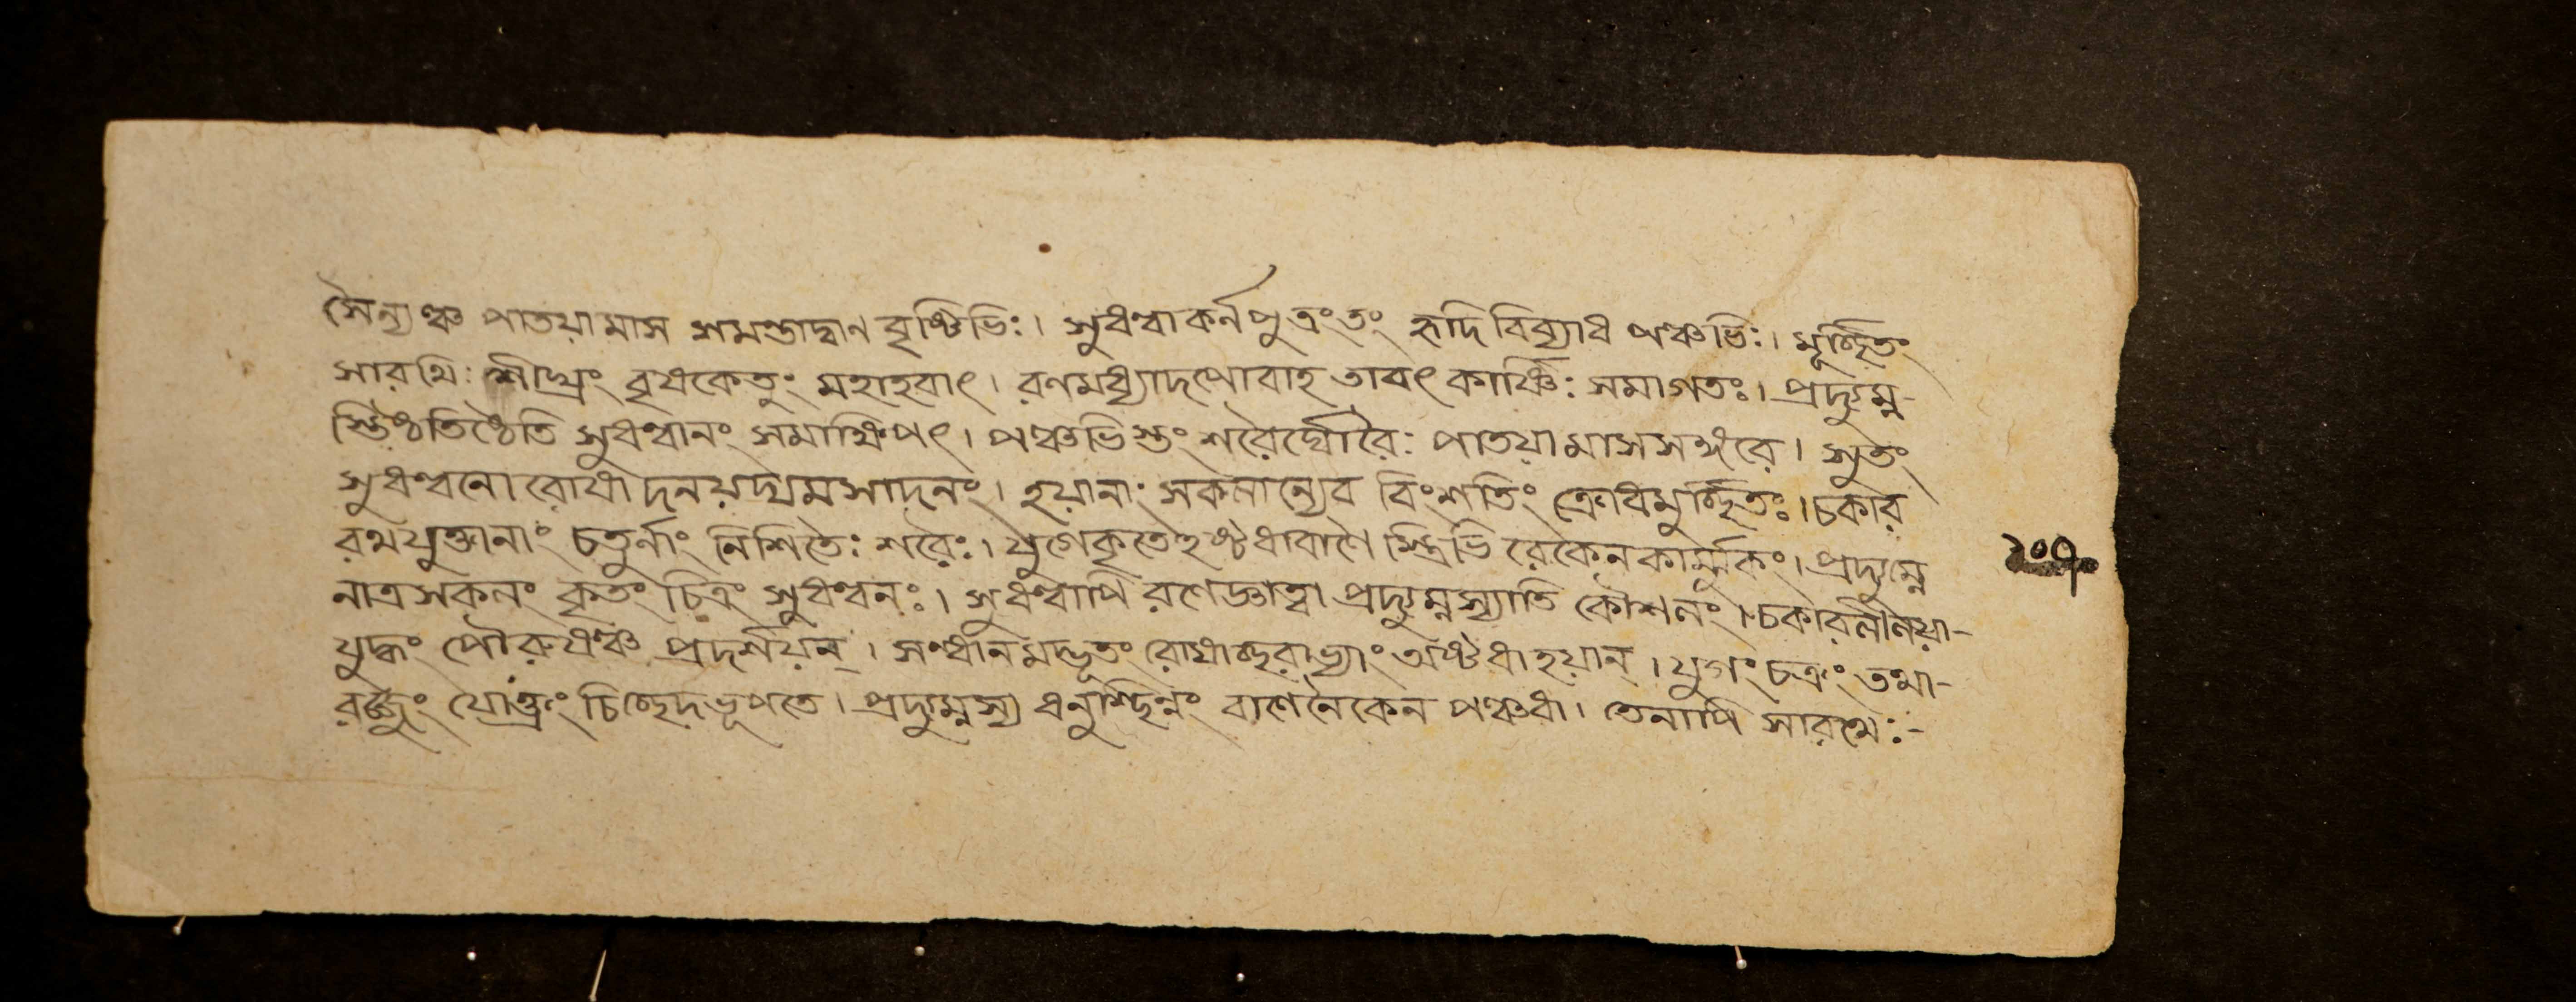 সৈন্যঞ্চ পাতয়ামাস শমন্তাদ্বাণ বৃষ্টিভিঃ। সুধন্বা কর্নপুত্রং তং হৃদি বিব্যাধ পঞ্চভিঃ। মূর্চ্ছিতং
সারথিঃ শীঘ্রং বৃষকেতুং মহাহবাৎ। রণমধ্যাদপোবাহ তাবৎ কার্ষ্ণিঃ সমাগতঃ। প্রদ্যুম্ন-
স্তিষ্ঠতিষ্ঠেতি সুধন্বানং সমাক্ষিপৎ। পঞ্চভিস্তং শরৈর্ঘোরৈঃ পাতয়ামাস সঙ্গরে। সুতং
সুধন্বনো রোষাদনয়দ্যমসাদনং। হয়ানাং সকলান্যেব বিংশতিং ক্রোধমুর্চ্ছিতঃ। চকার
রথযুক্তানাং চতুর্নাং নিশিতৈঃ শরৈঃ। যুগেকৃতেহষ্টধাবাণৈ স্ত্রিভি রেকেন কার্ম্মুকং। প্রদ্যুম্নে
নাত্র সকলং কৃতং চিত্রং সুধন্বনঃ। সুধন্বাপি রণেজ্ঞাত্বা প্রদ্যুম্নস্যাতি কৌশলং। চকারলীলয়া-
যুদ্ধং পৌরুষঞ্চ প্রদর্শয়ন্। সন্ধানমদ্ভূতং রোষাচ্ছরাভ্যাং অষ্টধাহয়ান্। যুগং চক্রং তথা-
রজ্জুং যোক্ত্রং চিচ্ছেদভূপতে। প্রদ্যুম্নস্য ধনুশ্ছিন্নং বাণেনৈকেন পঞ্চধা। তেনাপি সারথেঃ-
২০৭